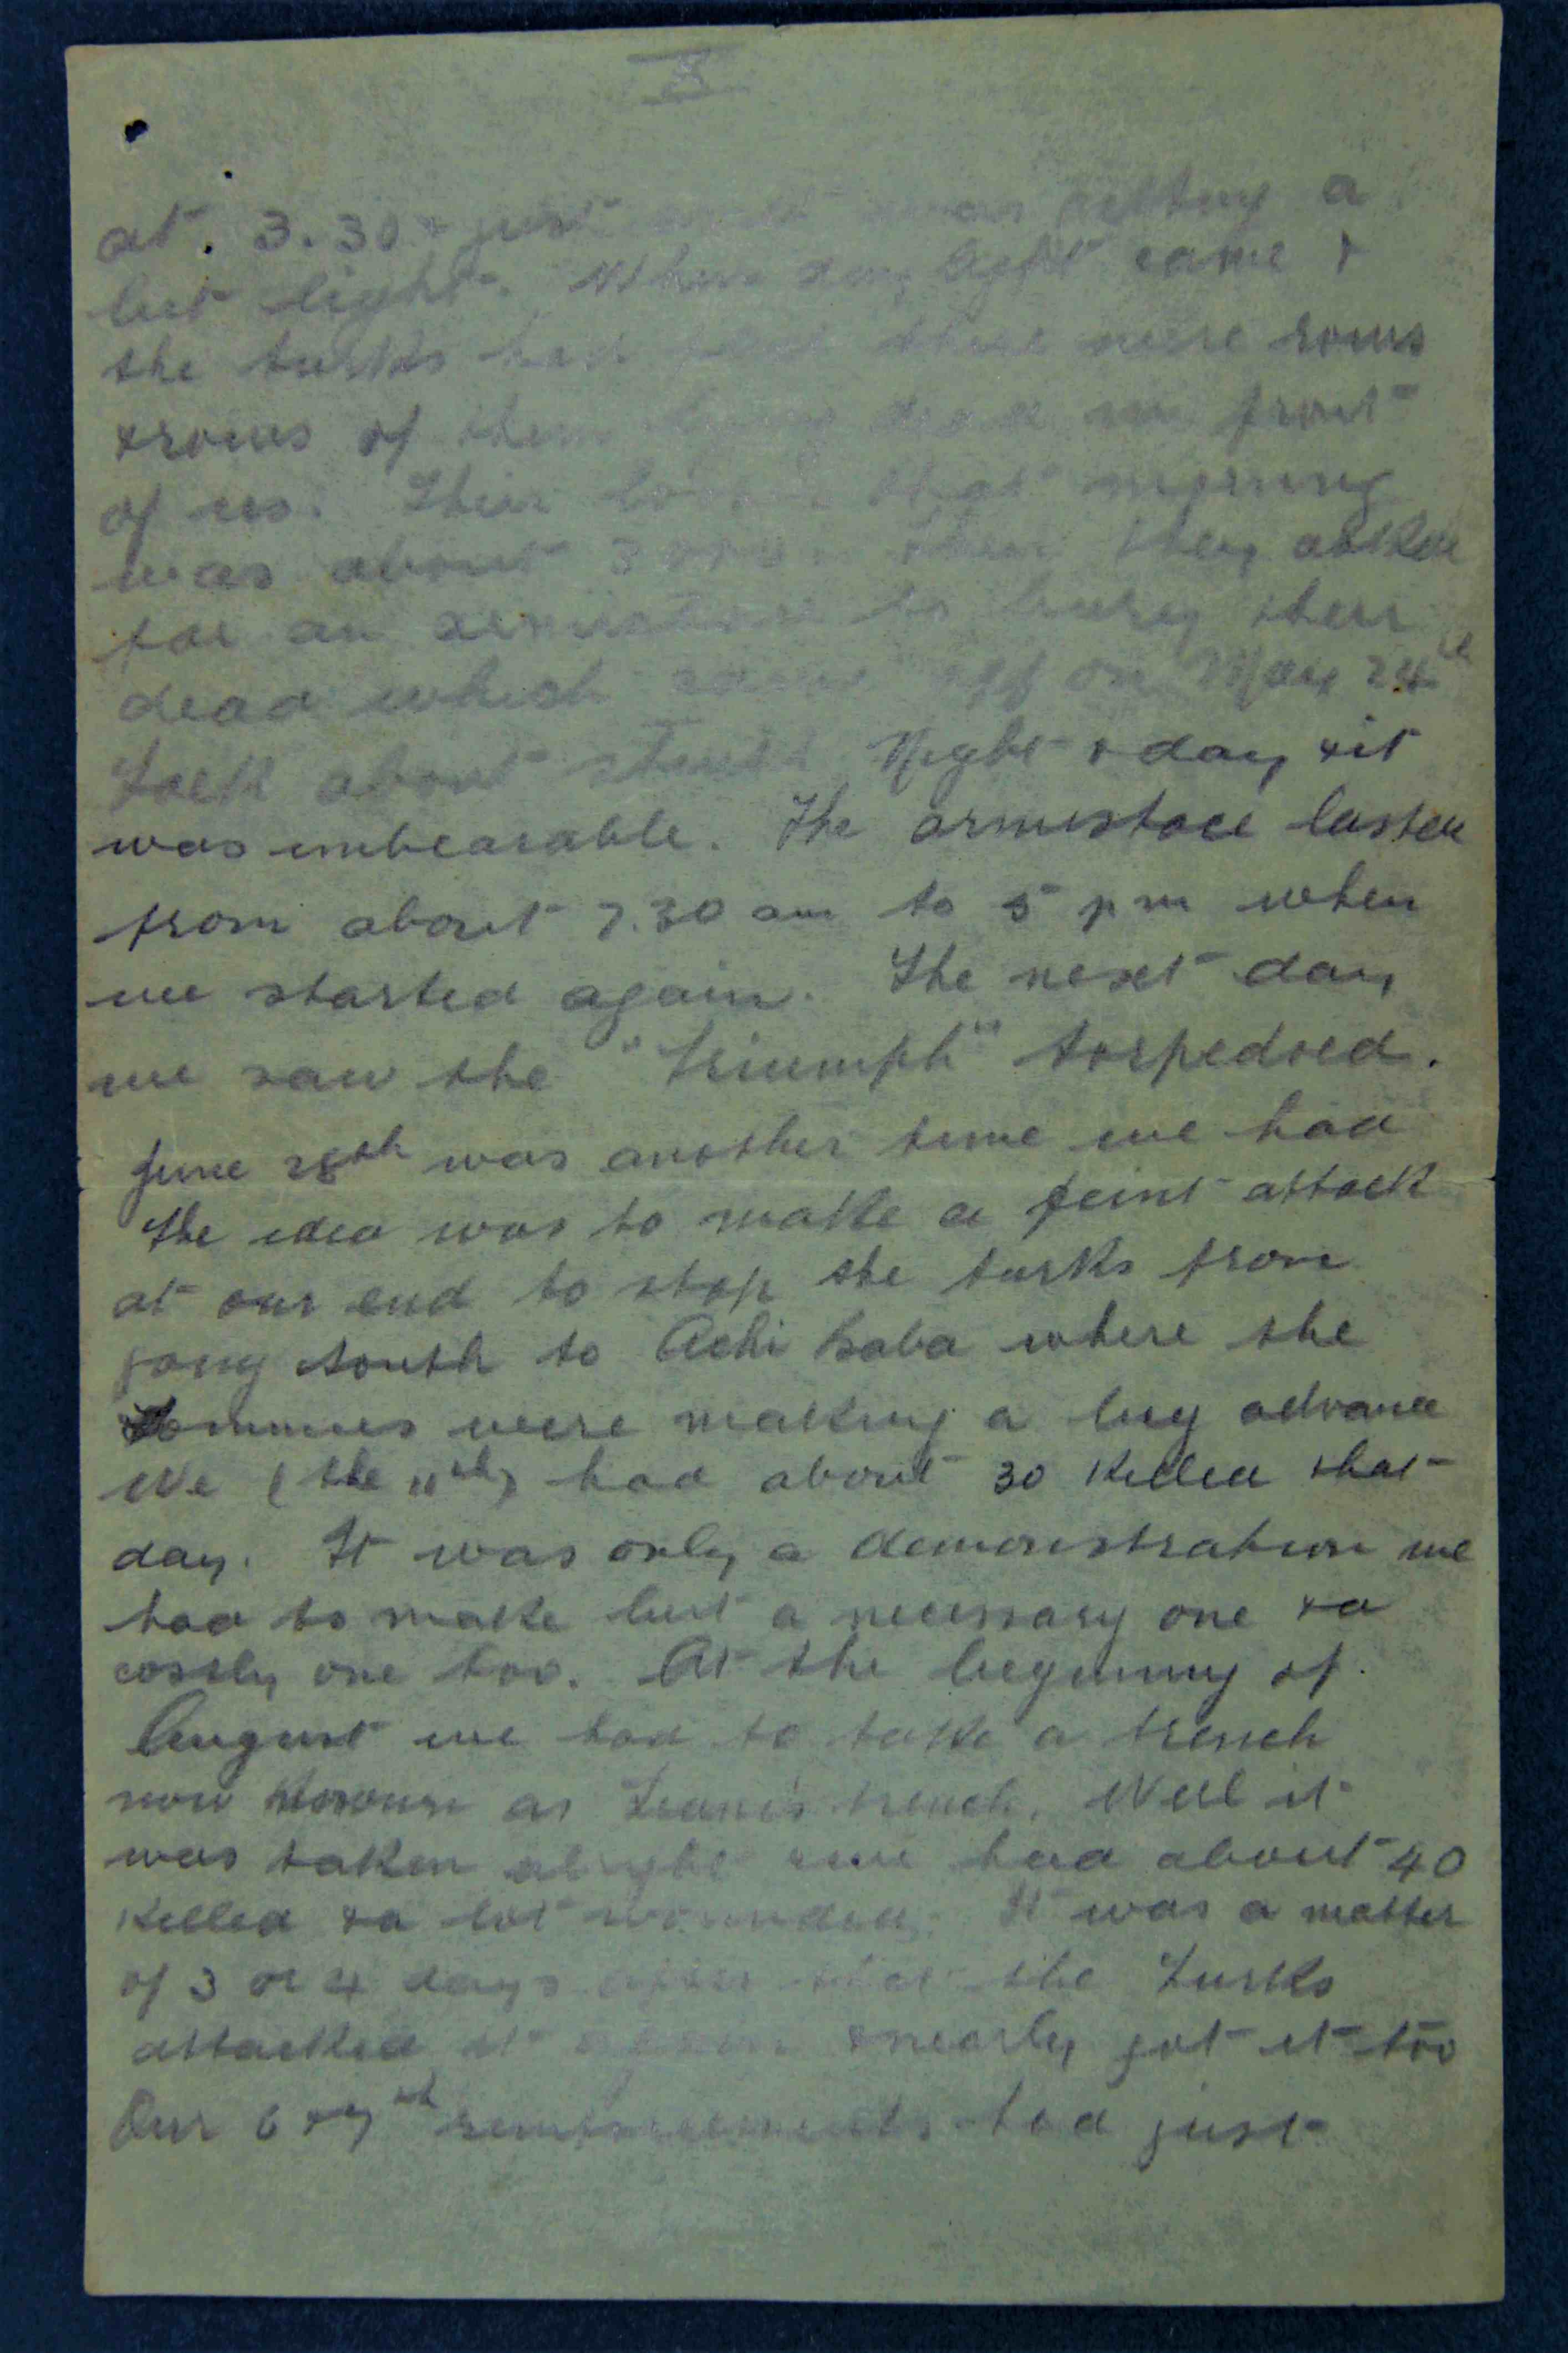 at 3.30 & just was getting a
bit light. When day light came &
the turks had there were rows
& rows of them lying dead in front
of us. Their that morning
was about then they asked
for an armistice to bury their
dead which came off on May 24th
Talk about Night & day & it
was unbearable. The armistace lasted
from about 7.30 am to 5 pm when
we started again. The next day
we saw the "Triumph" torpedoed.
June 28th was another time we had
the idea was to make a feint attack
at our end to stop the turks from
going south to Achi baba where the
Tommies were making a big advance
We (the 11th) had about 30 killed that
day. It was only a demonstration we
had to make but a necessary one & a
costly one too. At the beginning of
August we had to take a trench
now known as trench. Well it
was taken alright & we had about 40
killed & a lot wounded. It was a matter
of 3 or 4 days after that the Turks
attacked it again & nearly got it too
Our 6 & 7th reinforcements had just